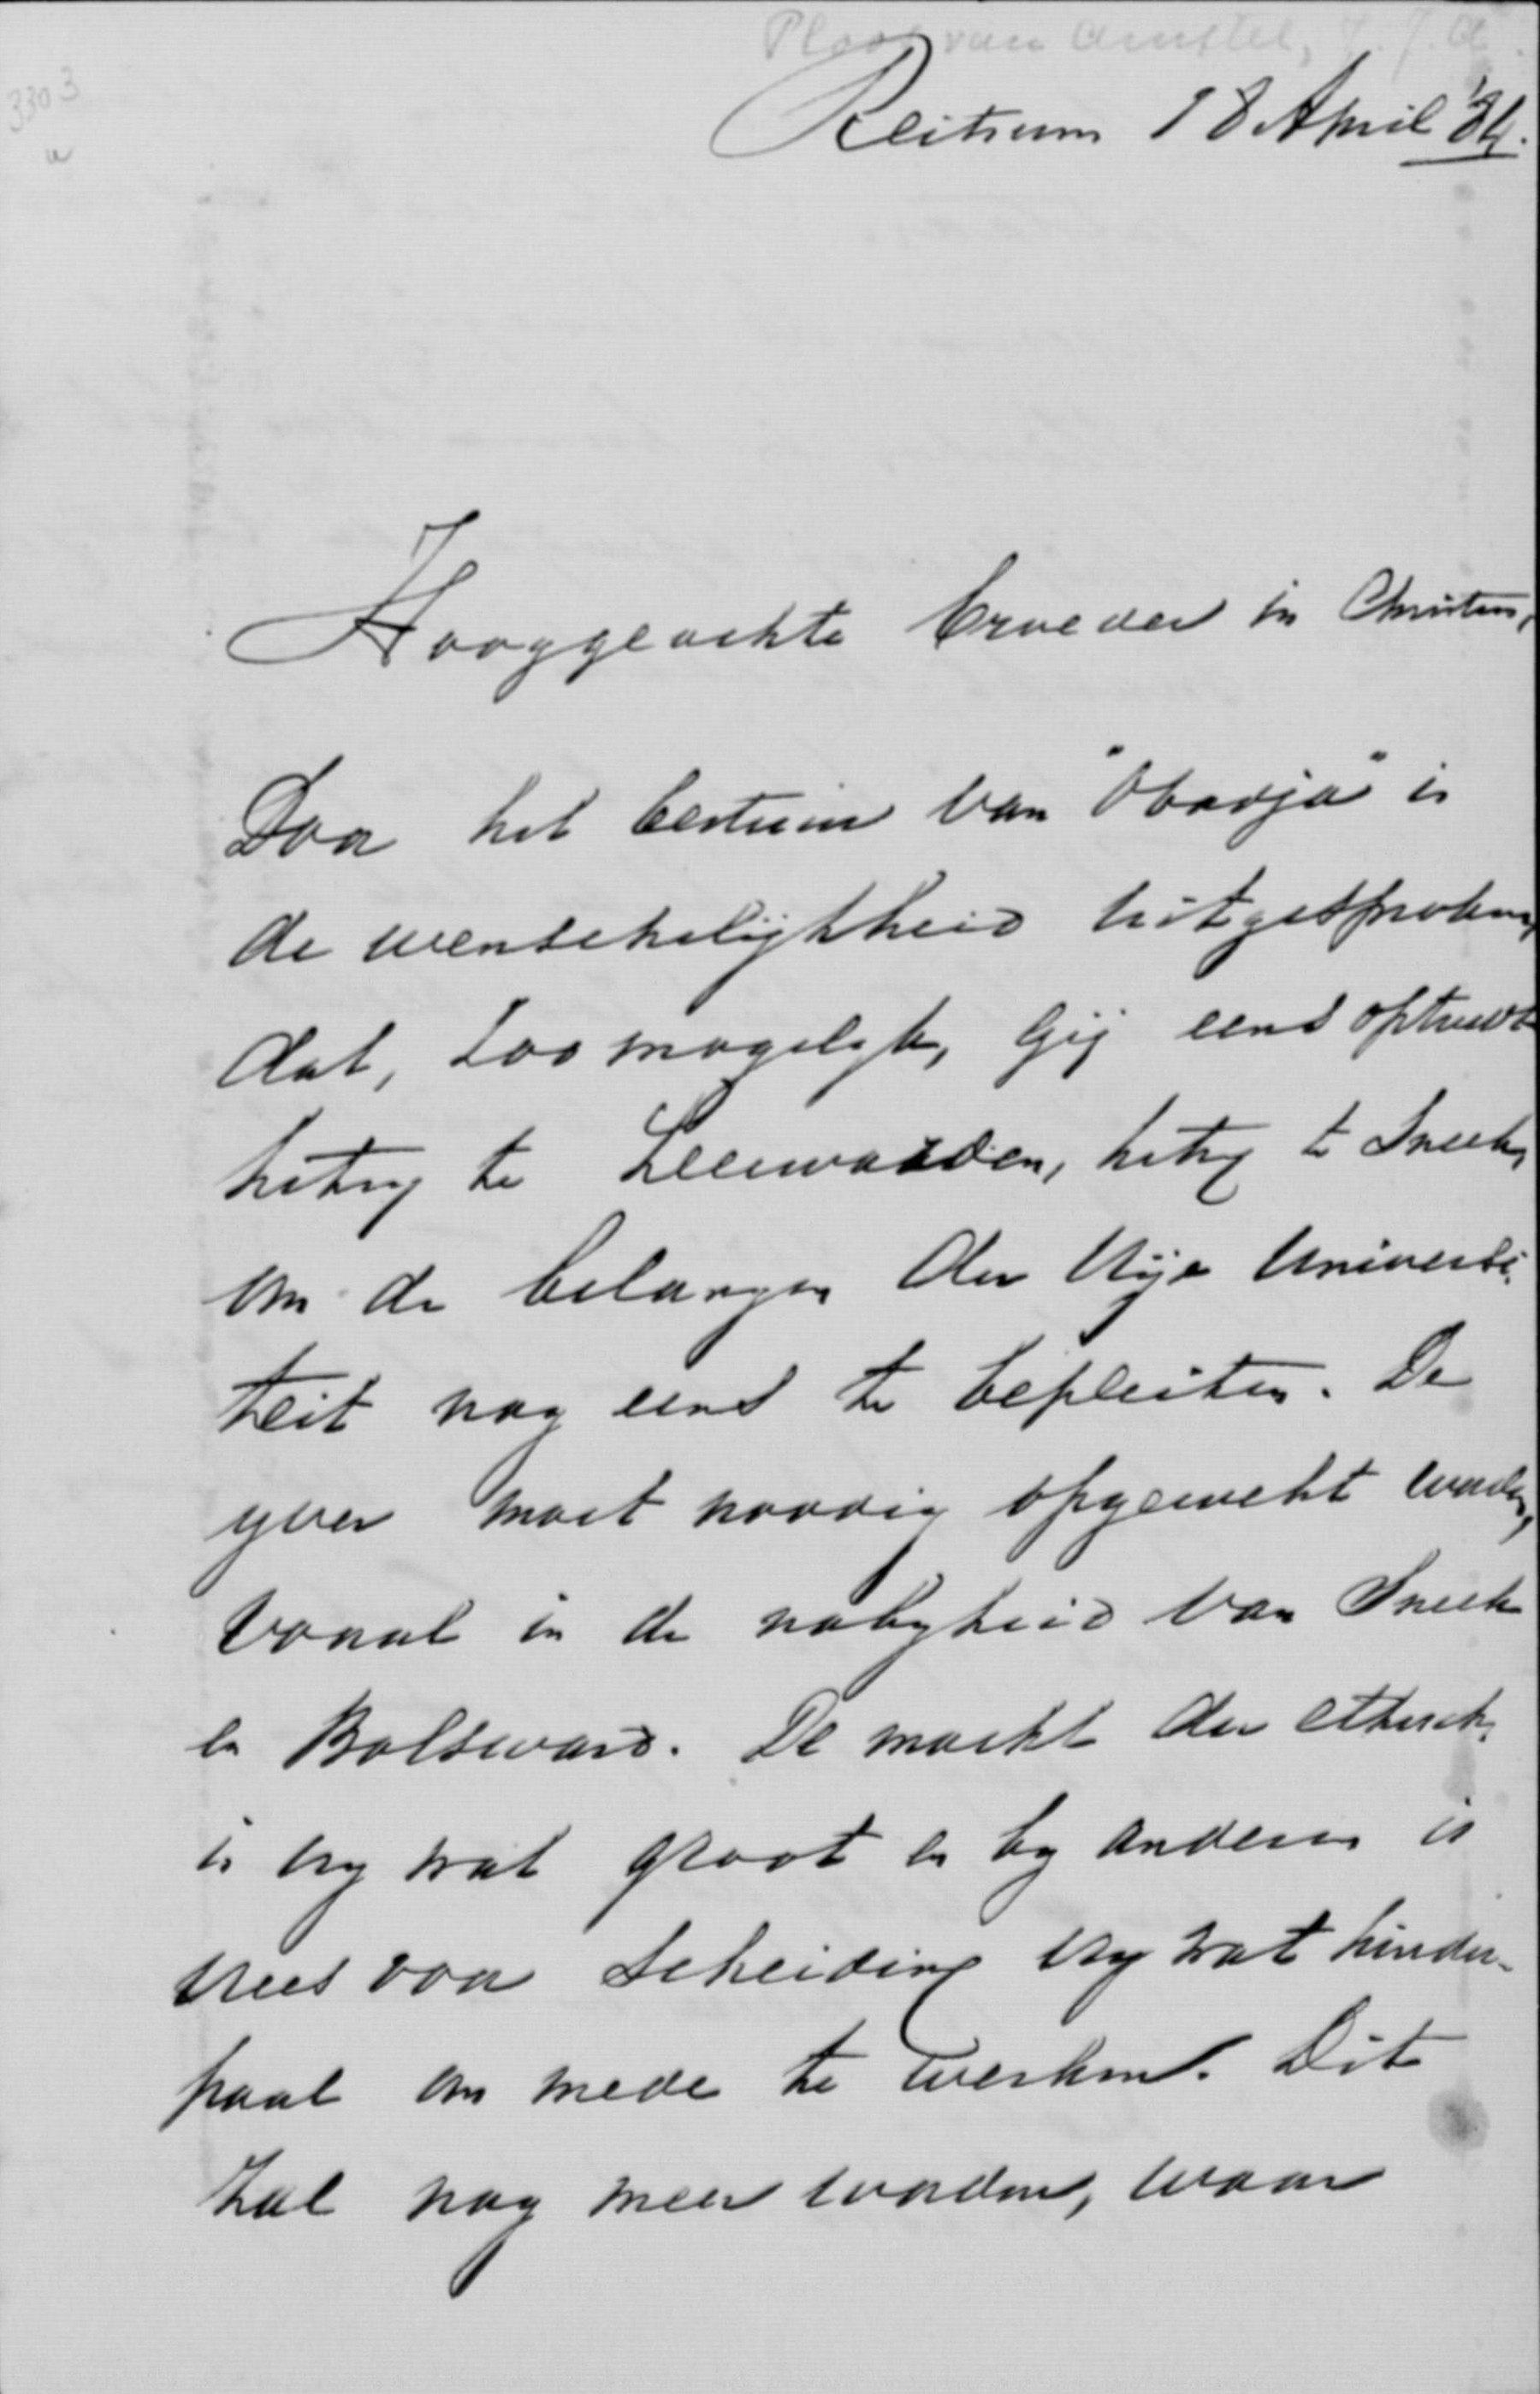 Ploos van Amstel, J. J. A.
3303
Reitsum 18 April '84.
Hooggeachte broeder in Christus,
Door het bestuur van "Obadja" is
de wenschelijkheid uitgesproken,
dat, zoo mogelijk, Gij eens optreedt
hetzij te Leeuwarden, hetzij te Sneek,
om de belangen der Vrije Universi-
teit nog eens te bepleiten. De
yver moet noodig opgewekt worden,
vooral in de nabyheid van Sneek
en Bolsward. De macht der ethisch.
is vry wat groot en by anderen is
vrees voor scheiding vry wat hinder-
paal om mede te werken. Dit
zal nog meer worden, waar